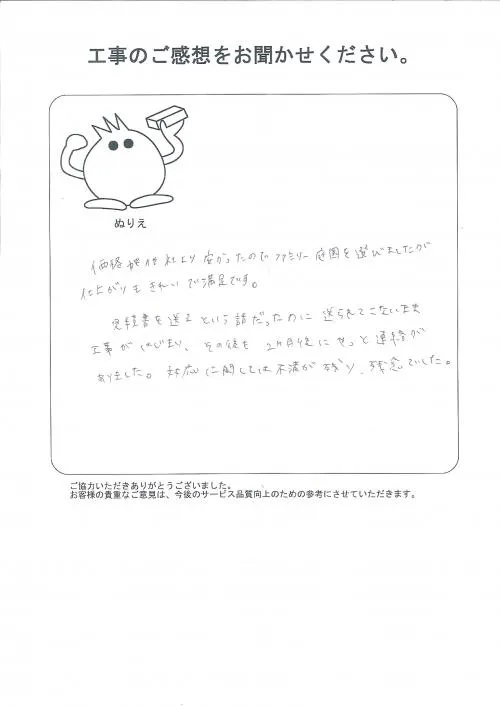 工事のご感想をお聞かせください。
ぬりえ
価格が他社より安かったのでファミリー庭園を選びましたが
仕上がりもきれいで満足です。
見積書を送るという話だったのに送られてこないまま
工事がはじまり、その後も2ヶ月後にやっと連絡が
ありました。対応に関しては不満が残り、残念でした。
ご協力いただきありがとうございました。
お客様の貴重なご意見は、今後のサービス品質向上のための参考にさせていただきます。